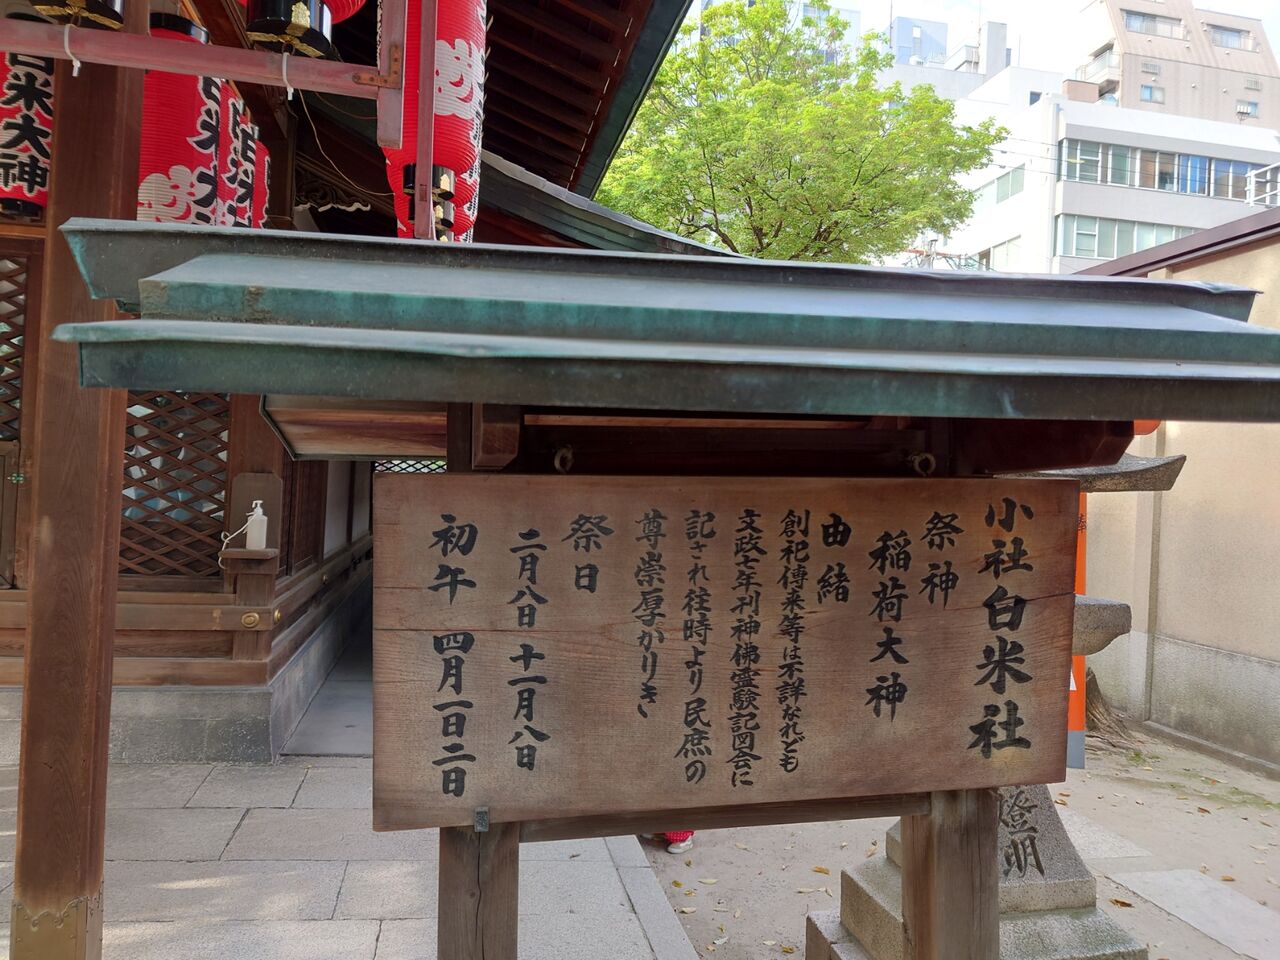 小社白米社
祭神
稲荷大神
由緒
創祀傳来等は不詳なれども
文政七年刊神佛霊験記図会に
記され往時より民庶の
尊崇厚かりき
祭日
二月八日 十一月八日
初午 四月一日二日
白米大神
白米大
奉
燈明